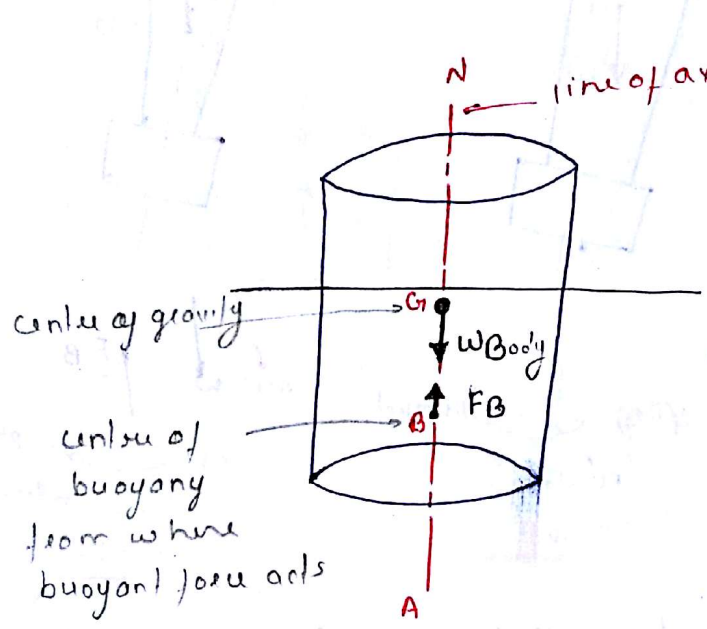 N
line of ax
G
centre of gravity
WBody
FB
B
centre of
buoyany
from where
buoyant force acts
A